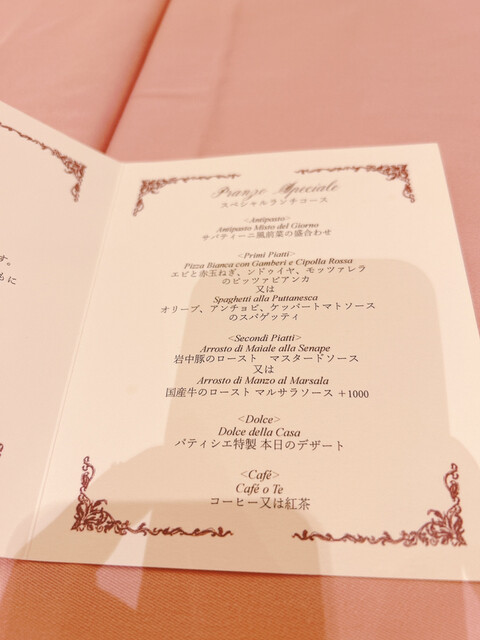 す。
もに
Pranzo Speciale
スペシャルランチコース
<Antipasto>
Antipasto Misto del Giorno
サバティーニ風前菜の盛合わせ
<Primi Piatti>
Pizza Bianca con Gamberi e Cipolla Rossa
エビと赤玉ねぎ、ンドゥイヤ、モッツァレラ
のピッツァビアンカ
又は
Spaghetti alla Puttanesca
オリーブ、アンチョビ、ケッパートマトソース
のスパゲッティ
<Secondi Piatti>
Arrosto di Maiale alla Senape
岩中豚のロースト マスタードソース
又は
Arrosto di Manzo al Marsala
国産牛のロースト マルサラソース +1000
<Dolce>
Dolce della Casa
パティシエ特製 本日のデザート
<Café>
Café o Te
コーヒー又は紅茶